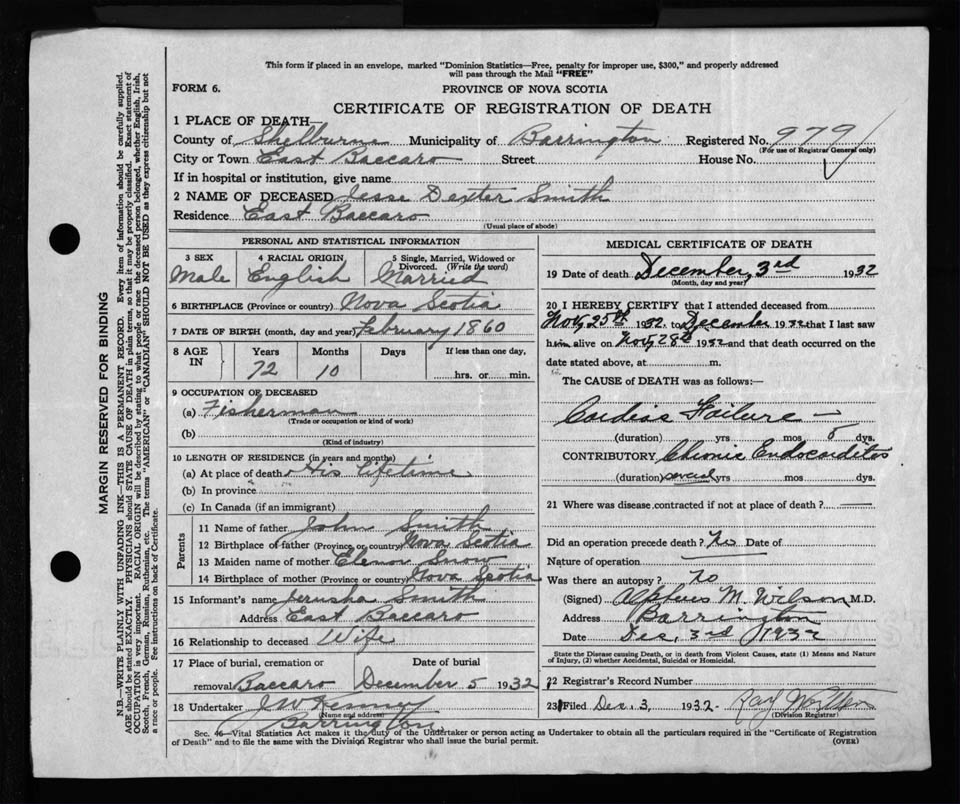 This form if placed in an envelope, marked "Dominion Statistics—Free, penalty for improper use, $300," and properly addressed
will pass through the Mail "FREE"
FORM 6.
PROVINCE OF NOVA SCOTIA
CERTIFICATE OF REGISTRATION OF DEATH
1 PLACE OF DEATH—
County of Shelburne Municipality of Barrington Registered No. 979
(For use of Registrar General only)
City or Town East Baccaro Street House No.
If in hospital or institution, give name
2 NAME OF DECEASED Jesse Dexter Smith
Residence East Baccaro
(Usual place of abode)
PERSONAL AND STATISTICAL INFORMATION
3 SEX 4 RACIAL ORIGIN 5 Single, Married, Widowed or
Divorced. (Write the word)
Male English Married
6 BIRTHPLACE (Province or country) Nova Scotia
7 DATE OF BIRTH (month, day and year) February 1860
8 AGE IN Years Months Days If less than one day,
72 10 hrs. or min.
9 OCCUPATION OF DECEASED
(a) Fisherman
(Trade or occupation or kind of work)
(b)
(Kind of industry)
10 LENGTH OF RESIDENCE (in years and months)
(a) At place of death His lifetime
(b) In province
(c) In Canada (if an immigrant)
Parents
11 Name of father John Smith
12 Birthplace of father (Province or country) Nova Scotia
13 Maiden name of mother Elenor Snow
14 Birthplace of mother (Province or country) Nova Scotia
15 Informant's name Jerusha Smith
Address East Baccaro
16 Relationship to deceased Wife
17 Place of burial, cremation or Date of burial
removal Baccaro December 5 1932
18 Undertaker J W Kenney
(Name and address)
Barrington
MEDICAL CERTIFICATE OF DEATH
19 Date of death December, 3rd 1932
(Month, day and year)
20 I HEREBY CERTIFY that I attended deceased from
Nov, 25th 1932, to December 1932 that I last saw
him alive on Nov, 28th 1932 and that death occurred on the
date stated above, at m.
The CAUSE of DEATH was as follows:—
Cardiac Failure —
(duration) yrs mos 8 dys.
CONTRIBUTORY Chronic Endocarditis
(duration) several yrs mos dys.
21 Where was disease contracted if not at place of death?
Did an operation precede death? No Date of
Nature of operation
Was there an autopsy? No
(Signed) Alpheus M. Wilson M.D.
Address Barrington
Date Dec, 3rd 1932
State the Disease causing Death, or in death from Violent Causes, state (1) Means and Nature
of Injury, (2) whether Accidental, Suicidal or Homicidal.
22 Registrar's Record Number
23 Filed Dec. 3, 1932 Ray
(Division Registrar)
Sec. 46—Vital Statistics Act makes it the duty of the Undertaker or person acting as Undertaker to obtain all the particulars required in the "Certificate of Registration
of Death" and to file the same with the Division Registrar who shall issue the burial permit. (OVER)
MARGIN RESERVED FOR BINDING
N.B.—WRITE PLAINLY WITH UNFADING INK—THIS IS A PERMANENT RECORD. Every item of information should be carefully supplied.
AGE should be stated EXACTLY. PHYSICIANS should STATE CAUSE OF DEATH in plain terms, so that it may be properly classified. Exact statement of
OCCUPATION is very important. RACIAL ORIGIN will be described by stating to what people or race the deceased person belonged, whether English, Irish,
Scotch, French, German, Russian, Ruthenian, etc. The terms "AMERICAN" or "CANADIAN" SHOULD NOT BE USED as they express citizenship but not
a race or people. See instructions on back of Certificate.